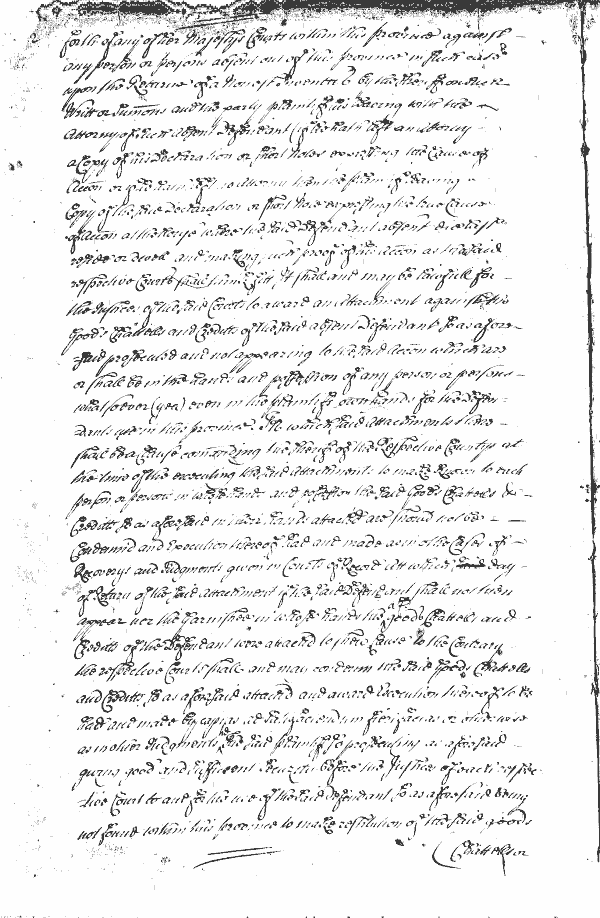 forth of any of her Majestys Courts within this Province against
any person or persons absent out of this Province in such case
upon the Returne of a Non est Inventus by the Sheriff on such
Writt or Summons and the party plaintiff his leaving with the
Attorney of such absent Defendant if he hath left an Attorney
a Copy of his Declaration or short Notes expressing the Cause of
Accon or if he hath left no Attorney then the plaintiff leaving a
Copy of the said Declaration or short Note expressing the true Cause
of Accon at the house where the said Defendant absent did last
reside or dwell and making such proof of his Accon as the said
respective Courts shall think fitt, It shall and may be lawfull for
the Justices of the said Courts to award an Attachment against the
Goods Chattells and Creditts of the said absent Defendant so as afore
said prosecuted and not appearing to the said Accon which are
or shall be in the hands and possession of any person or persons
whatsoever (yea) even in the plaintiff's own hands for the Defen
dants use in this Province. In which said Attachments there
shall be a Clause comanding the sheriff of the Respective Countys at
the time of the executing the said Attachments to make known to each
person or persons in whose hands and possession the said Goods Chattells &
Creditts so as aforesaid in their hands attached are should not be
Condemned and Execution thereof had and made as in other Cases of
Recoverys and Judgments given in Courts of Record Att which said day
of Return of the said Attachment if the said Defendant shall not then
appear nor the Garnishee in whose hands the goods Chattells and
Creditts of the Defendant were attached to shew Cause to the Contrary
the respective Courts shall and may condemn the said Goods Chattells
and Creditts so as aforesaid attached and award Execution thereof to be
had and made by Capias ad satisfaciendum fieri facias or otherwise
as in other Judgments, the said plaintiff so prosecuting as aforesaid
giving good and sufficient Security before the Justices of each respec
tive Court to and for the use of the said Defendant so as aforesaid being
not found within this Province to make restitution of the said goods
Chattells or